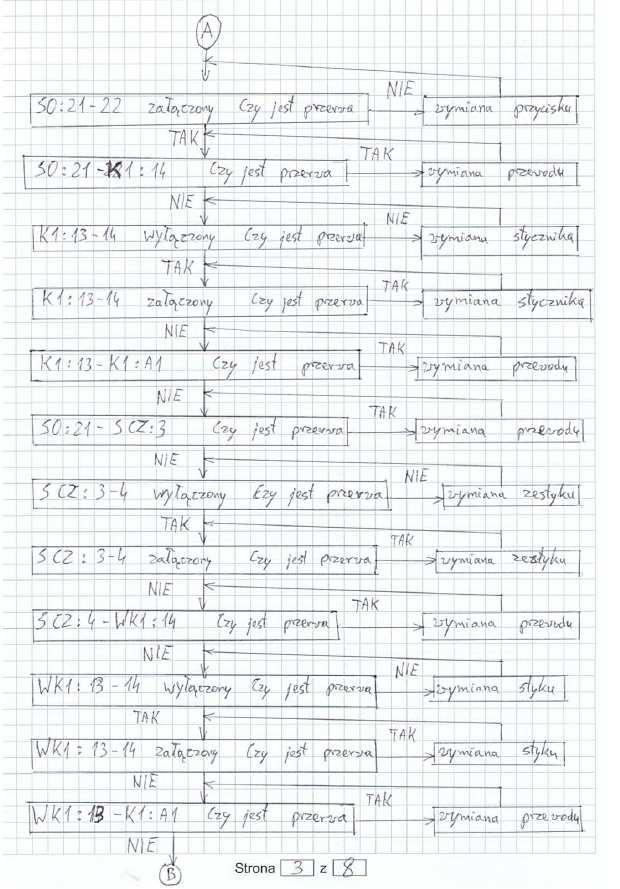 A
NIE
SO:21-22 załączony Czy jest przerwa wymiana przycisku
TAK TAK
SO:21-K1:14 Czy jest przerwa wymiana przewodu
NIE NIE
K1:13-14 wyłączony Czy jest przerwa wymiana stycznika
TAK TAK
K1:13-14 załączony Czy jest przerwa wymiana stycznika
NIE TAK
K1:13-K1:A1 Czy jest przerwa wymiana przewodu
NIE TAK
SO:21-SCZ:3 Czy jest przerwa wymiana przewodu
NIE NIE
SCZ:3-4 wyłączony Czy jest przerwa wymiana zestyku
TAK TAK
SCZ:3-4 załączony Czy jest przerwa wymiana zestyku
NIE TAK
SCZ:4-WK1:14 Czy jest przerwa wymiana przewodu
NIE NIE
WK1:13-14 wyłączony Czy jest przerwa wymiana styku
TAK TAK
WK1:13-14 załączony Czy jest przerwa wymiana styku
NIE TAK
WK1:13-K1:A1 Czy jest przerwa wymiana przewodu
NIE
B Strona 3 z 8